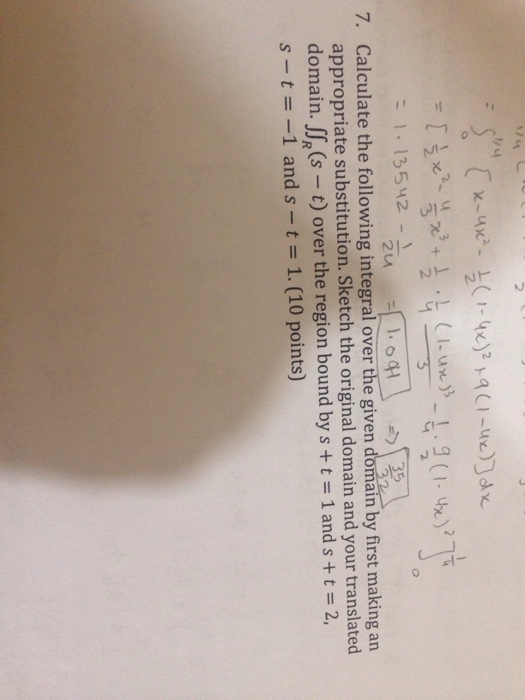 = ∫₀^{1/4} [x-4x² - ½(1-4x)² + 9(1-4x)]dx
= [½x² - 4/3 x³ + ½ · ¼ (1-4x)³/3 - ¼ · 9/2 (1-4x)²]₀^{¼}
= 1.13542 - 1/24 = 1.094 => 35/32
7. Calculate the following integral over the given domain by first making an
appropriate substitution. Sketch the original domain and your translated
domain. ∬_R (s − t) over the region bound by s + t = 1 and s + t = 2,
s − t = −1 and s − t = 1. (10 points)